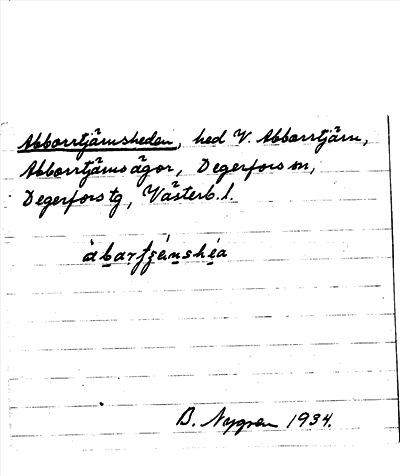 Abborrtjärnsheden, hed V. Abborrtjärn,
Abborrtjärnsägor, Degerfors sn,
Degerfors tg, Västerb. l.
àbartjénshéa
B. Nygren 1934.